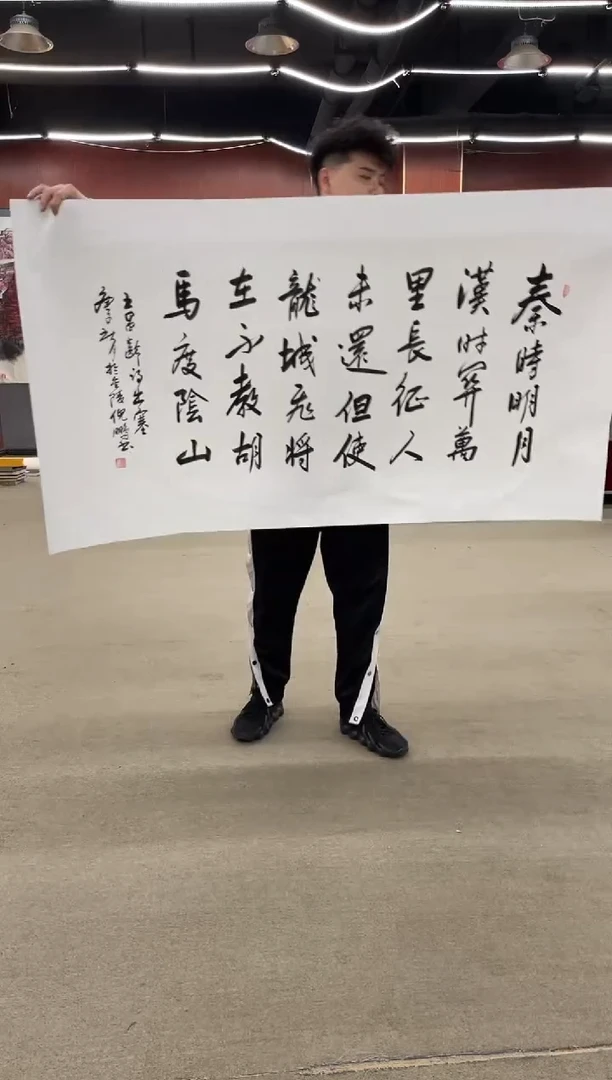 秦時明月
漢时關萬
里長征人
未還但使
龍城飛將
在不教胡
馬度陰山
王昌齡詩出塞
於金陵倪鵬書